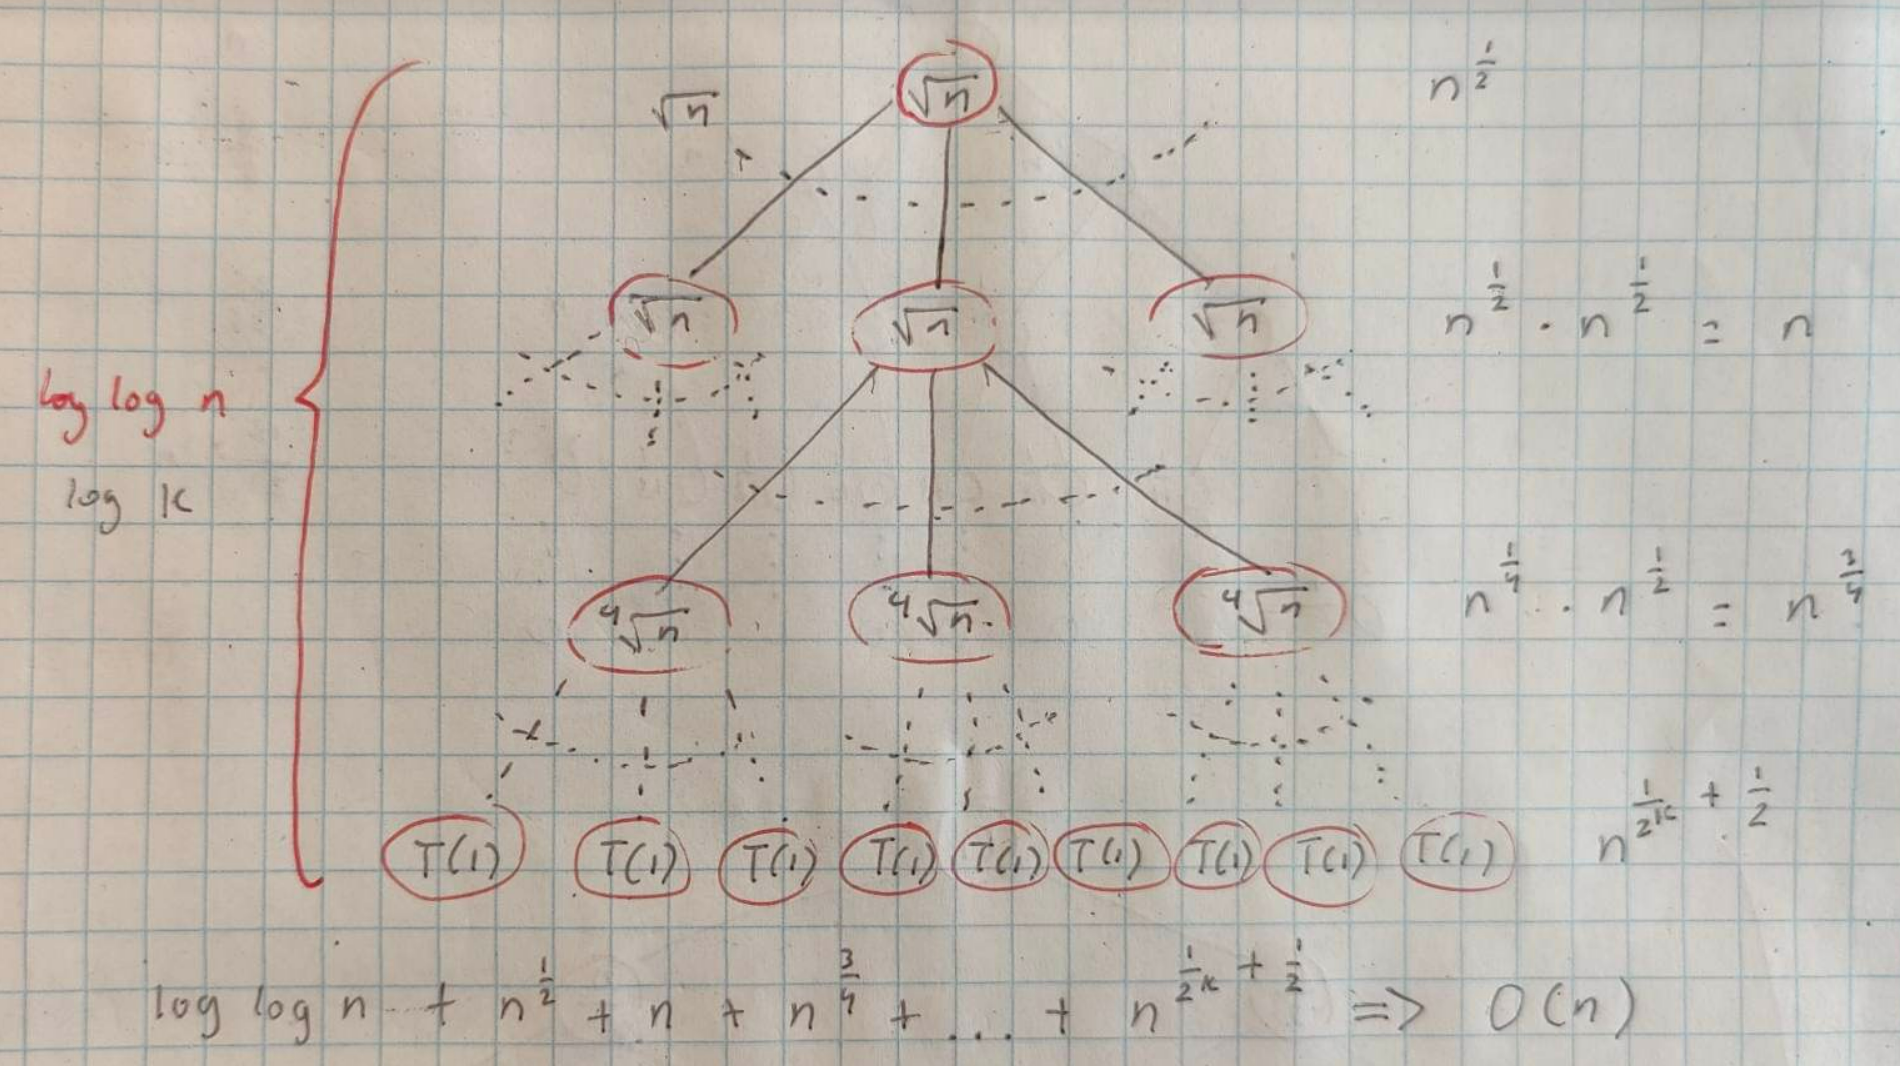 √n √n n^{1/2}
√n √n √n n^{1/2} · n^{1/2} = n
log log n
log k
⁴√n ⁴√n. ⁴√n n^{1/4} · n^{1/2} = n^{3/4}
T(1) T(1) T(1) T(1) T(1) T(1) T(1) T(1) T(1) n^{1/2^k + 1/2}
log log n + n^{1/2} + n + n^{3/4} + .... + n^{1/2^k + 1/2} => O(n)